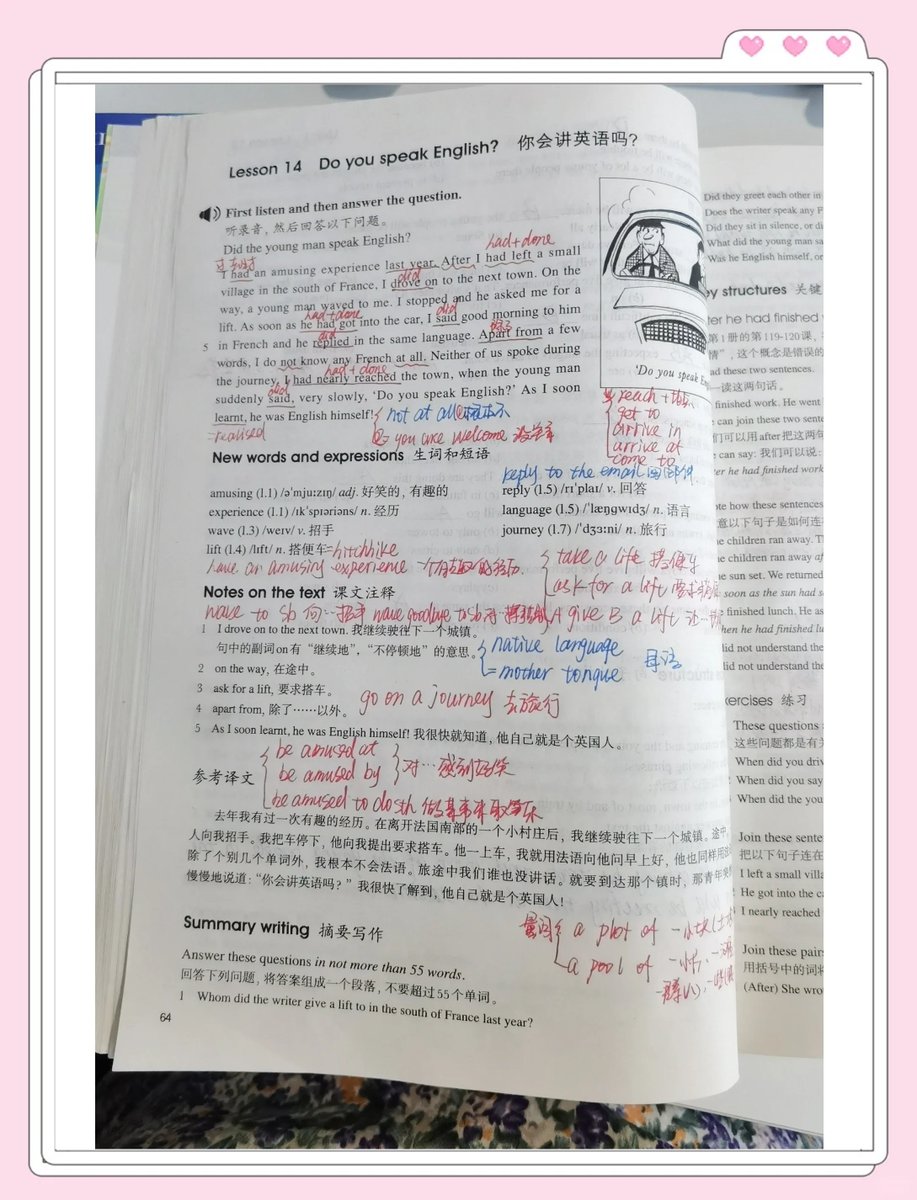 Lesson 14 Do you speak English? 你会讲英语吗?
First listen and then answer the question.
听录音,然后回答以下问题。
Did the young man speak English?
had+done
I had an amusing experience last year. After I had left a small
did
village in the south of France, I drove on to the next town. On the
way, a young man waved to me. I stopped and he asked me for a
had+done did
lift. As soon as he had got into the car, I said good morning to him
did
5 in French and he replied in the same language. Apart from a few
words, I do not know any French at all. Neither of us spoke during
had+done
the journey. I had nearly reached the town, when the young man
did
suddenly said, very slowly, 'Do you speak English?' As I soon
learnt, he was English himself!
=realised
not at all 根本不
you are welcome
'Do you speak
reach+
get to
arrive in
arrive at
come to
New words and expressions 生词和短语
reply to the email
amusing (l.1) /ə'mju:zɪŋ/ adj. 好笑的,有趣的
experience (l.1) /ɪk'spɪərɪəns/ n. 经历
wave (l.3) /weɪv/ v. 招手
lift (l.4) /lɪft/ n. 搭便车=hitchhike
reply (l.5) /rɪ'plaɪ/ v. 回答
language (l.5) /'læŋgwɪdʒ/ n. 语言
journey (l.7) /'dʒɜ:ni/ n. 旅行
have an amusing experience
take a life 搭便车
ask for a lift
A give B a life
Notes on the text 课文注释
wave to sb 向…招手 wave goodbye to sb
1 I drove on to the next town. 我继续驶往下一个城镇。
句中的副词on有“继续地”,“不停顿地”的意思。
native language
=mother tongue 母语
2 on the way, 在途中。
3 ask for a lift, 要求搭车。
4 apart from, 除了……以外。
go on a journey 去旅行
5 As I soon learnt, he was English himself! 我很快就知道,他自己就是个英国人。
be amused at
be amused by
对…感到好笑
be amused to do sth
参考译文
去年我有过一次有趣的经历。在离开法国南部的一个小村庄后,我继续驶往下一个城镇。途中
人向我招手。我把车停下,他向我提出要求搭车。他一上车,我就用法语向他问早上好,他也同样用法
除了个别几个单词外,我根本不会法语。旅途中我们谁也没讲话。就要到达那个镇时,那青年突
慢慢地说道:“你会讲英语吗?”我很快了解到,他自己就是个英国人!
Summary writing 摘要写作
量词
a plot of 一小块
a pool of
Answer these questions in not more than 55 words.
回答下列问题,将答案组成一个段落,不要超过55个单词。
1 Whom did the writer give a lift to in the south of France last year?
64
Did they greet each other in
Does the writer speak any F
Did they sit in silence, or di
What did the young man sa
Was he English himself, or
ey structures 关键
er he had finished
第1册的第119-120课,
情”,这个概念是错误的
ad these two sentences.
一读这两句话。
finished work. He went
can join these two sentenc
们可以用after把这两句
can say: 我们可以说:
er he had finished work
ote how these sentences
意以下句子是如何连
e children ran away. Th
e children ran away af
e sun set. We returned
soon as the sun had s
e finished lunch. He as
hen he had finished lu
did not understand the
did not understand the
xercises 练习
These questions a
这些问题都是有关
When did you driv
When did you say
When did the you
Join these sente
把以下句子连在
I left a small villa
He got into the ca
I nearly reached
Join these pairs
用括号中的词将
(After) She wro